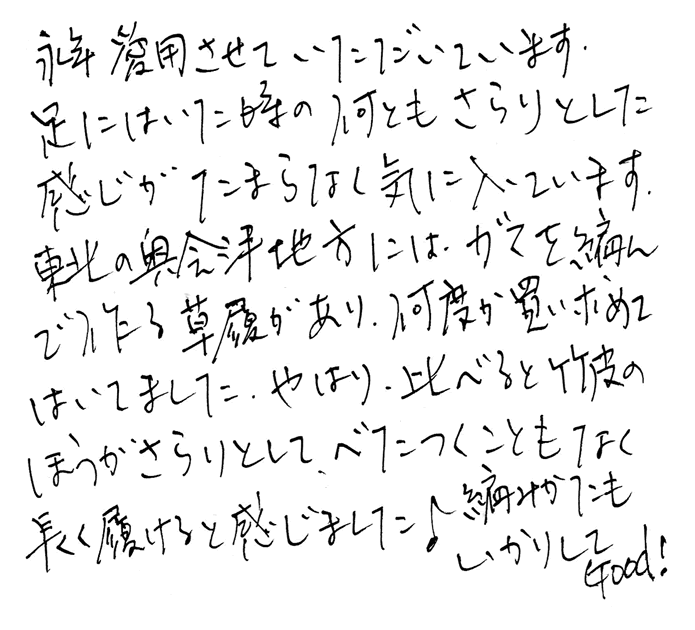 永年愛用させていただいています.
足にはいた時の何ともさらりとした
感じがたまらなく気に入ています.
東北の奥会津地方には.がまを編ん
で作る草履があり.何度か買い求めて
はいてました.やはり.比べると竹皮の
ほうがさらりとして、べたつくこともなく
長く履けると感じました♪
編みかたも
しかりして
Good!